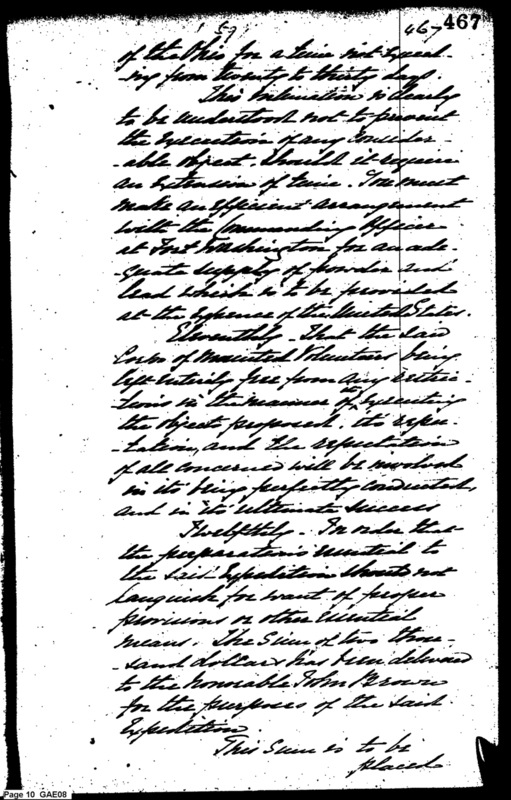 59
467 467
of the Ohio for a time not exceed-
-ing from twenty to thirty days.
This intimation is clearly
to be understood not to prevent
the execution of any consider-
-able object should it require
an extension of time. You must
make an efficient arrangement
with the Commanding Officer
at Fort Washington for an ade-
-quate supply of powder and
lead which is to be provided
at the expence of the United States.
Eleventhly. That the said
Corps of mounted Volunteers being
left entirely free from any restric-
-tions in the manner of executing
the object proposed. its repu-
-tation, and the reputation
of all concerned will be involved
in its being perfectly conducted,
and in its ultimate success
Twelfthly. In order that
the preparations essential to
the said Expedition should not
languish for want of proper
provisions or other essential
means. The Sum of two thou-
-sand dollars has been delivered
to the honorable John Brown
for the purposes of the said
Expedition.
This Sum is to be
placed
Page 10 GAE08